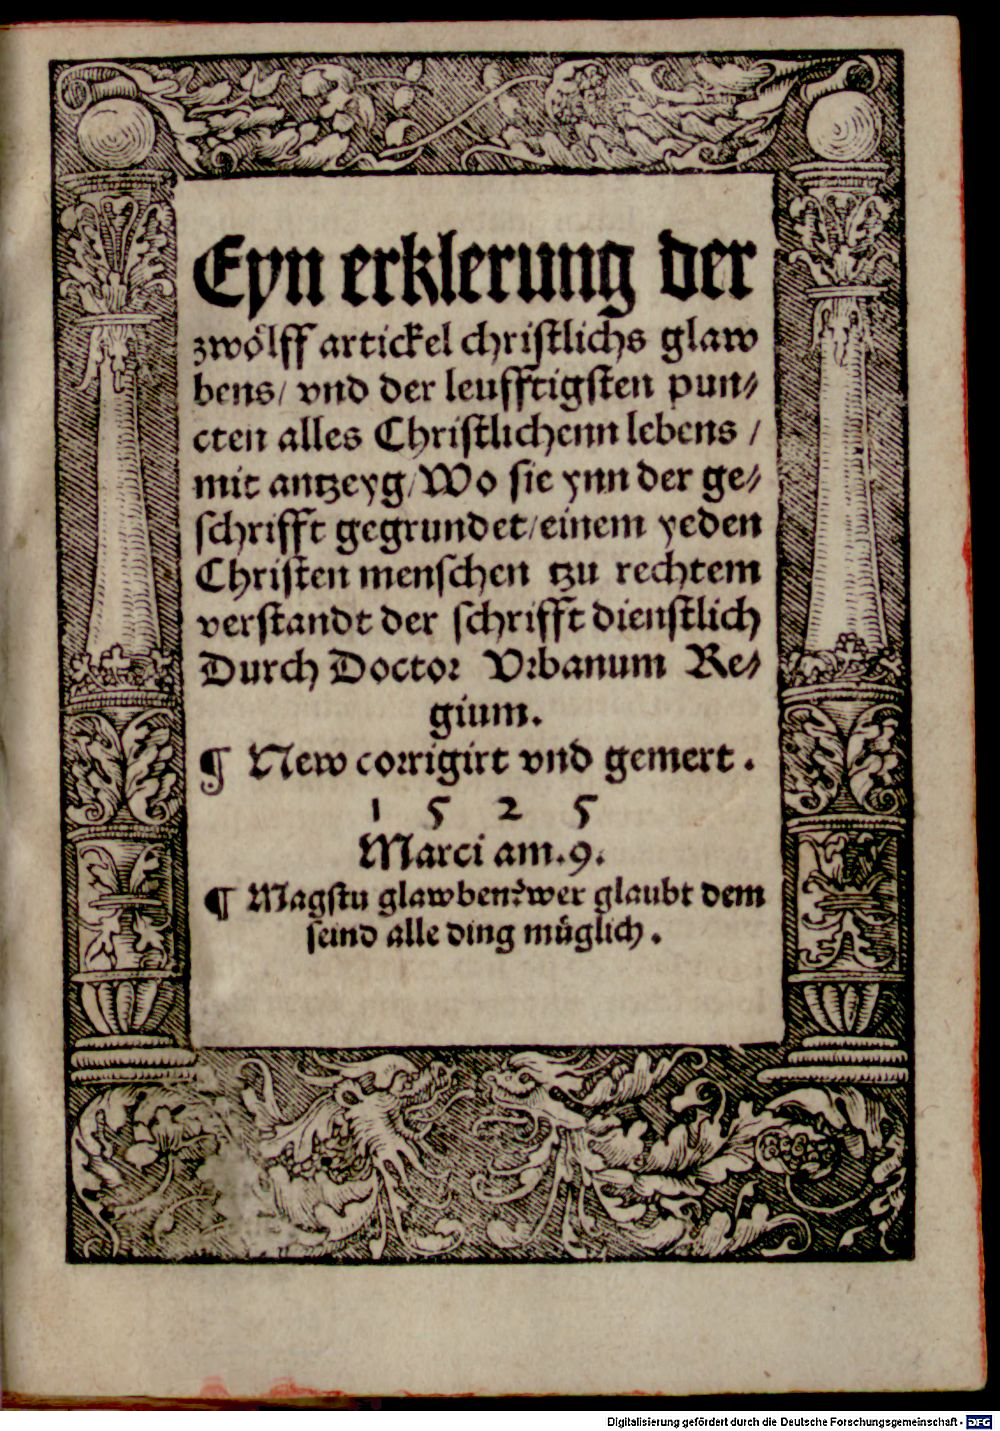 Eyn erklerung der
zwoͤlff artickel christlichs glaw
bens/ vnd der leufftigsten pun⸗
cten alles Christlichenn lebens /
mit antzeyg/ Wo sie ynn der ge⸗
schrifft gegrundet/ einem yeden
Christen menschen tzu rechtem
verstandt der schrifft dienstlich
Durch Doctor Vrbanum Re⸗
gium.
¶ New corrigirt vnd gemert .
1 5 2 5
Marci am .9.
¶ Magstu glawben? wer glaubt dem
seind alle ding muͤglich .
Digitalisierung gefördert durch die Deutsche Forschungsgemeinschaft - DFG